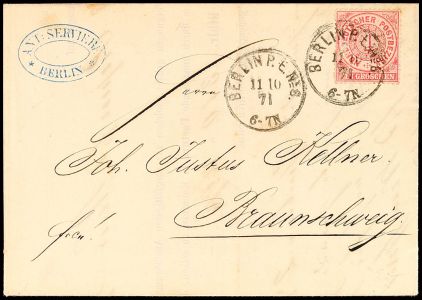 ANT: SERVIÈRE
BERLIN
BERLIN P. E. No 8.
11 10
71
6-7N.
BERLIN P. E.
11
71
6-7N.
POSTBEZIRK
GROSCHEN
Herrn
Joh. Justus Kellner.
Braunschweig.
frco!